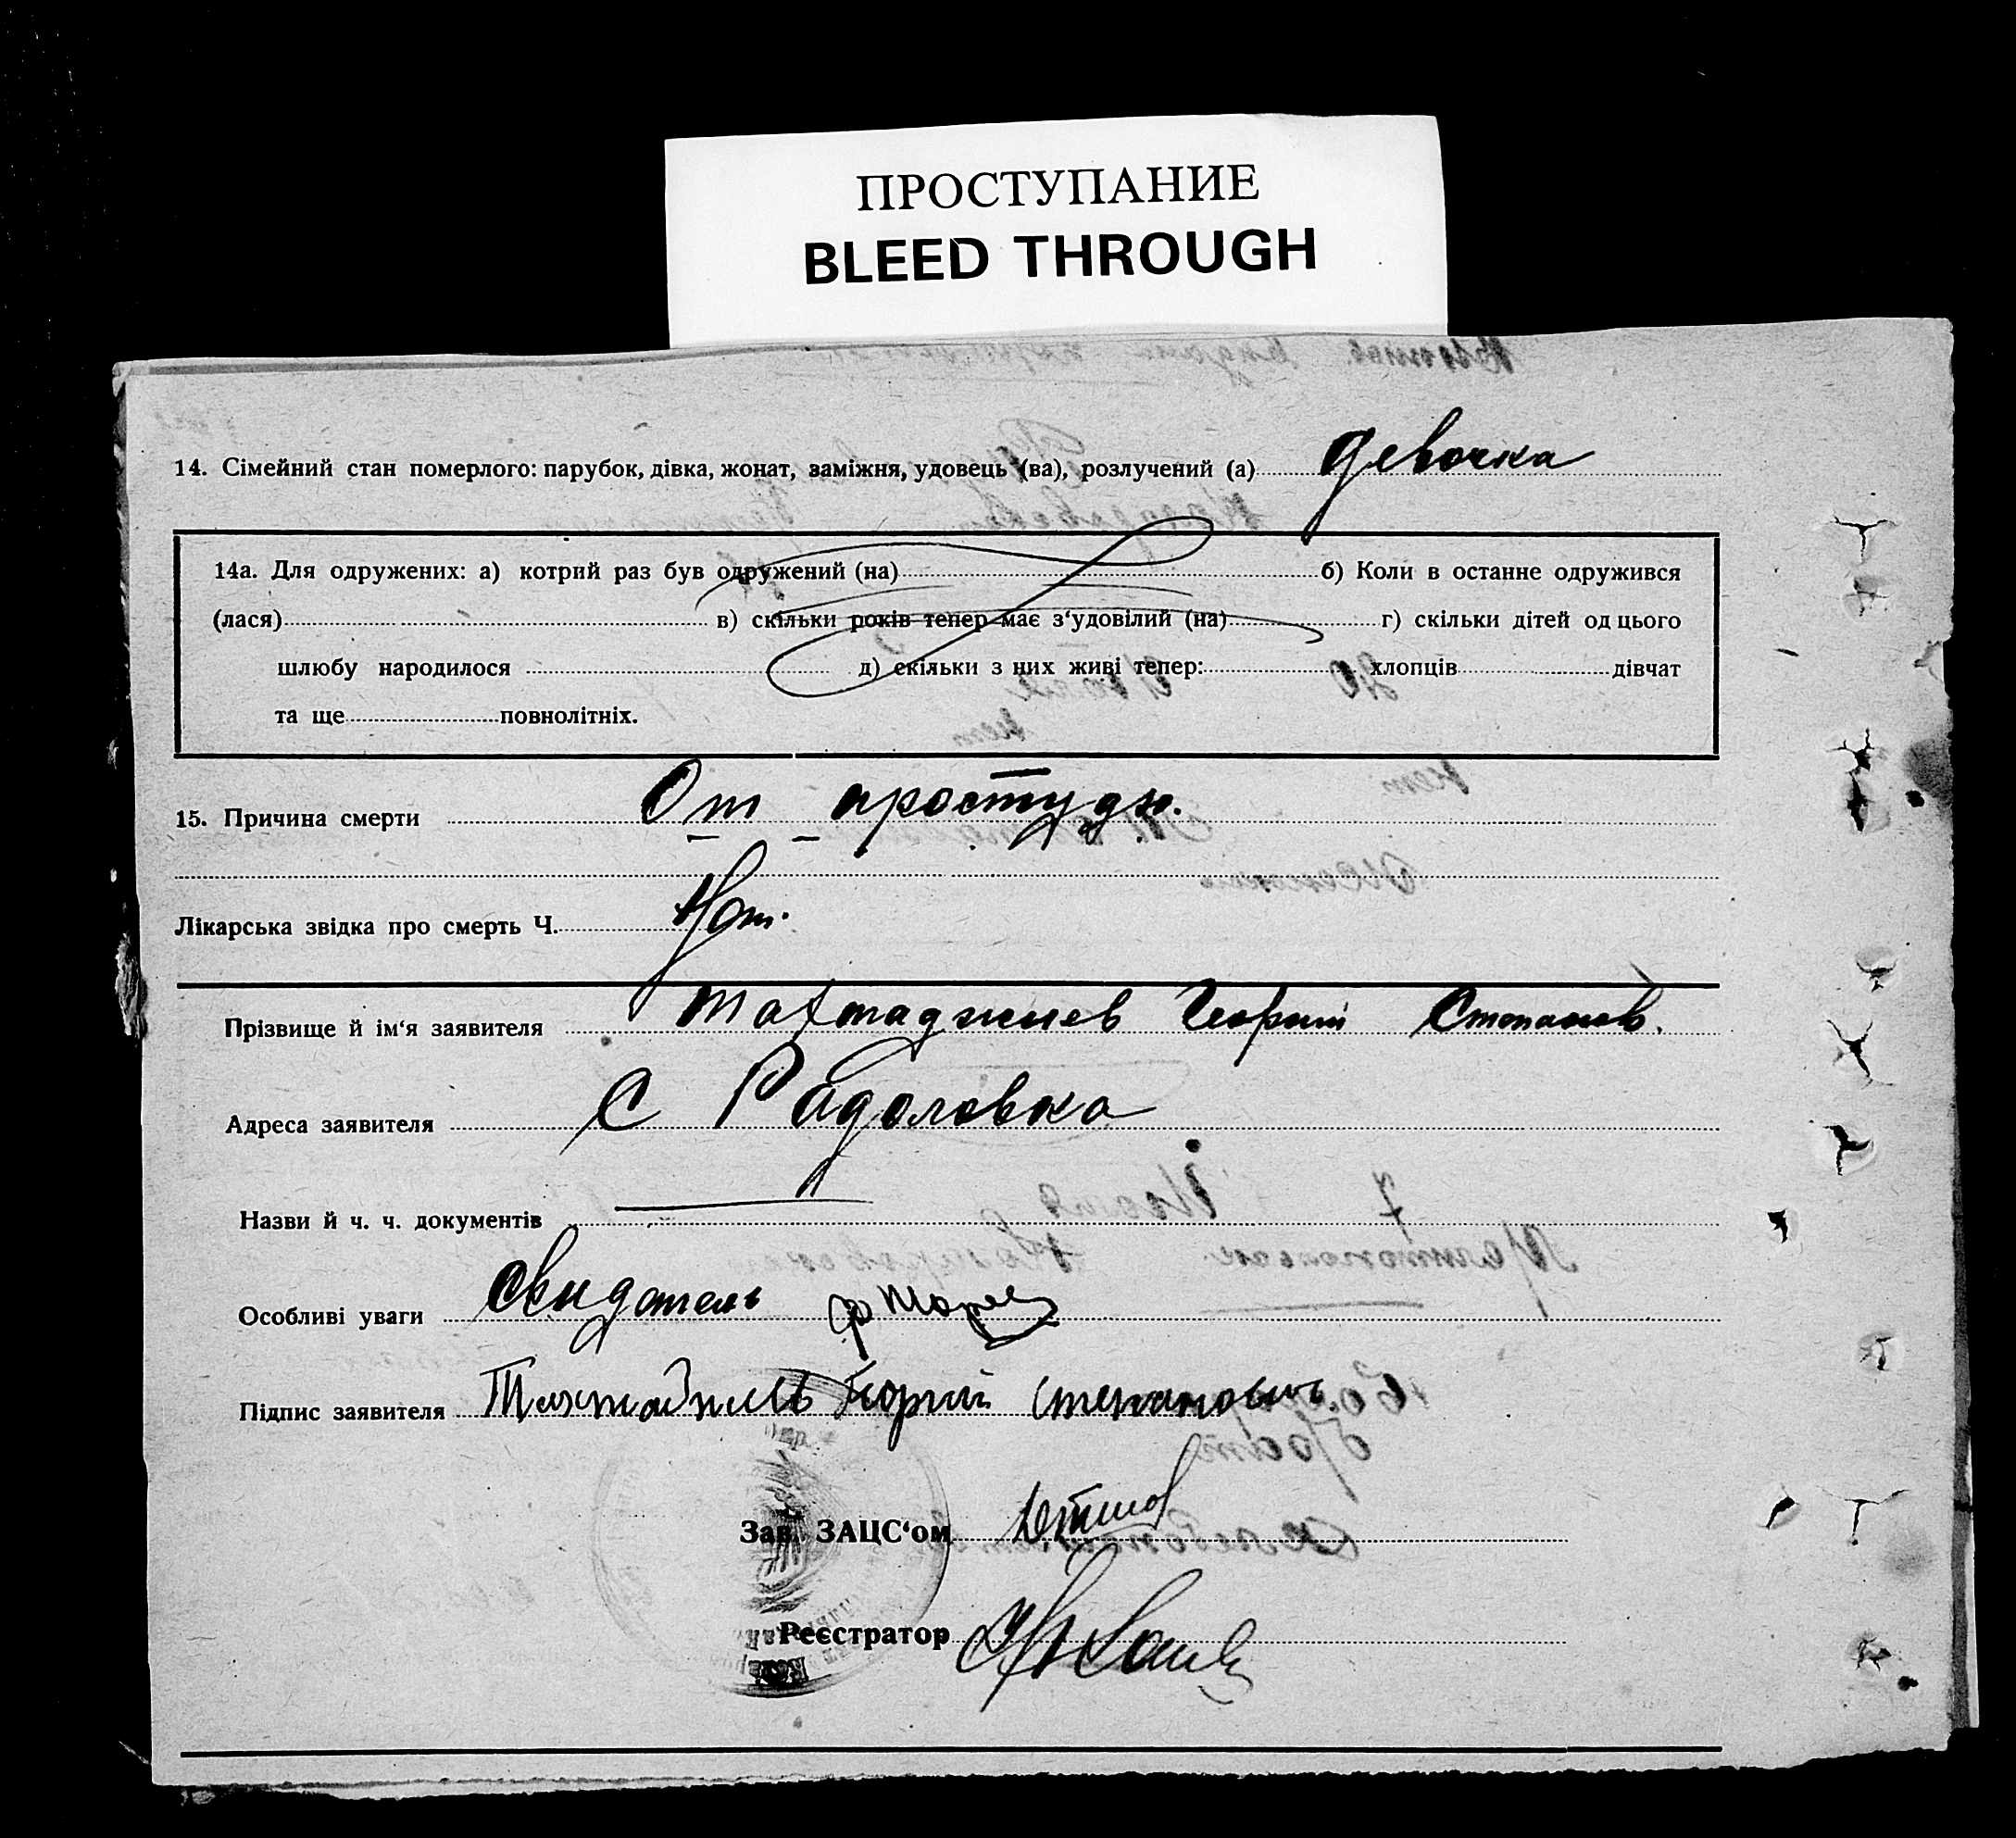 ПРОСТУПАНИЕ
BLEED THROUGH
14. Сімейний стан померлого: парубок, дівка, жонат, заміжня, удовець (ва), розлучений (а) девочка
14а. Для одружених: а) котрий раз був одружений (на) б) Коли в останнє одружився
(лася) в) скільки років тепер має з'удовілий (на) г) скільки дітей од цього
шлюбу народилося д) скільки з них живі тепер: хлопців дівчат
та ще повнолітніх.
15. Причина смерти От простуды.
Лікарська звідка про смерть Ч. Нет.
Прізвище й ім'я заявителя Тахтаджиев Георгий Степанов.
Адреса заявителя С Радоловка
Назви й ч. ч. документів
Особливі уваги Свидетель
Підпис заявителя Тахтаджиев Георгий Степанович
Зав. ЗАЦС'ом
Реєстратор